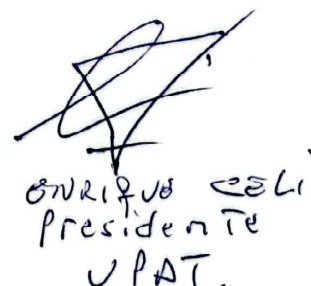 ENRIQUE CELI
Presidente
UPAT.